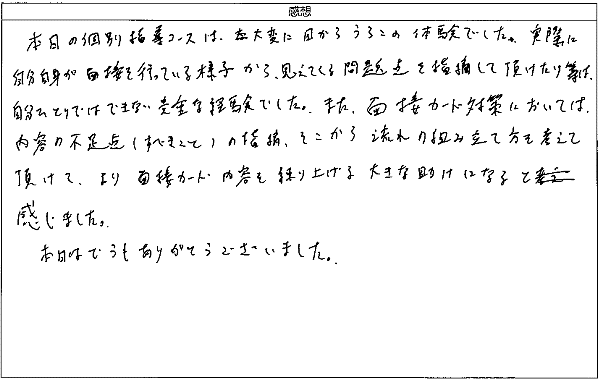 感想
本日の個別指導コースは、大変に目からうろこの体験でした。実際に
自分自身が面接を行っている様子から、見えてくる問題点を指摘して頂けたり等は、
自分ひとりではできない貴重な経験でした。また、面接カード対策においては、
内容の不足点(すべきこと)の指摘、そこから流れの組み立て方を考えて
頂けて、より面接カード内容を練り上げる大きな助けになると
感じました。
本日はどうもありがとうございました。